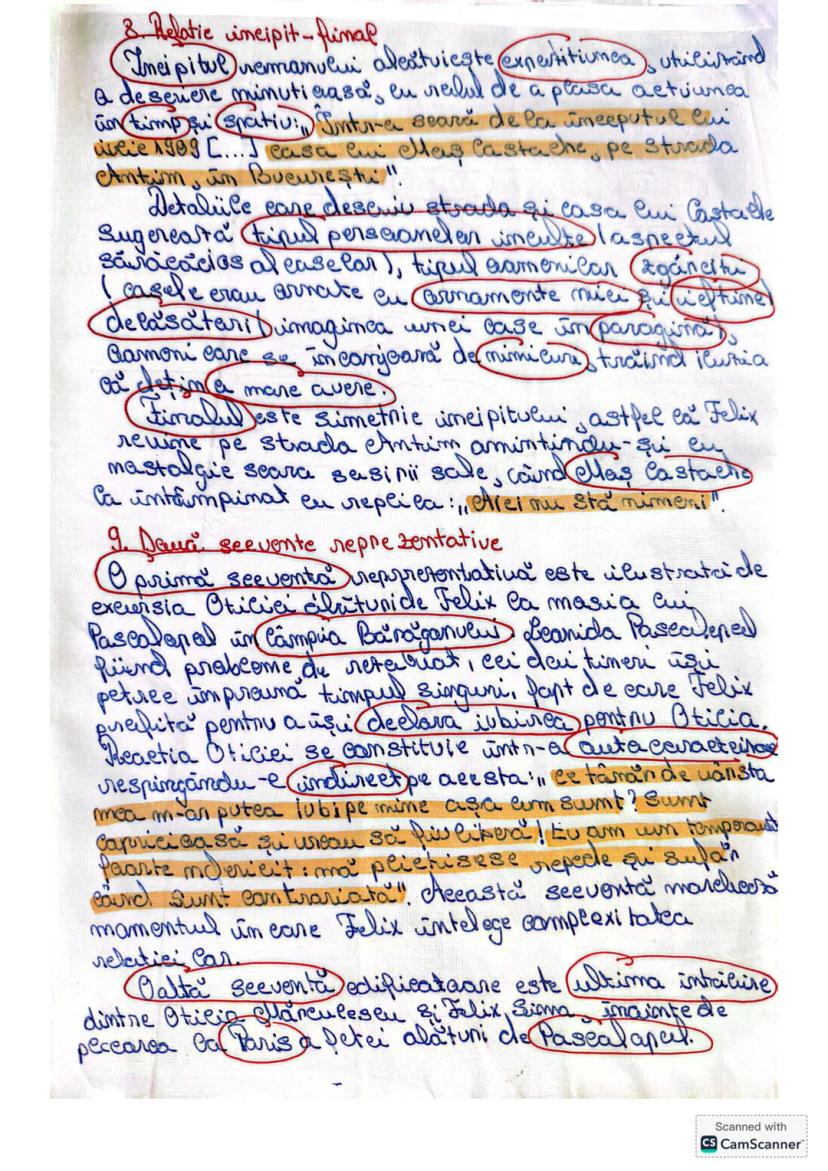 8. Relație incipit-final
Incipitul romanului alcătuiește expozițiunea, utilizând
o descriere minuțioasă, cu rolul de a plasa acțiunea
în timp și spațiu: „Într-o seară de la începutul lui
iulie 1909 [...] casa lui Moș Costache, pe strada
Antim, în București".
Detaliile care descriu strada și casa lui Costache
sugerează tipul persoanelor inculte (aspectul
sărăcăcios al caselor), tipul oamenilor zgârciți
(casele erau ornate cu ornamente mici și ieftine)
delăsători (imaginea unei case în paragină),
oameni care se înconjoară de nimicuri, trăind iluzia
că dețin o mare avere.
Finalul este simetric incipitului, astfel că Felix
revine pe strada Antim amintindu-și cu
nostalgie seara sosirii sale, când Moș Costache
l-a întâmpinat cu replica: „Aici nu stă nimeni".
9. Două secvențe reprezentative
O primă secvență reprezentativă este ilustrată de
excursia Otiliei alături de Felix la moșia lui
Pascalopol în Câmpia Bărăganului. Leonida Pascalopol
fiind probleme de rezolvat, cei doi tineri își
petrec împreună timpul singuri, fapt de care Felix
profită pentru a își declara iubirea pentru Otilia.
Reacția Otiliei se constituie într-o autocaracterizare
respingându-l indirect pe acesta: „Ce tânăr de vârsta
mea m-ar putea iubi pe mine așa cum sunt? Sunt
capricioasă și vreau să fiu liberă! Eu am un temperament
foarte nefericit: mă plictisesc repede și sufăr
când sunt contrariată". Această secvență marchează
momentul în care Felix înțelege complexitatea
relației lor.
O altă secvență edificatoare este ultima întâlnire
dintre Otilia Mărculescu și Felix Sima, înainte de
plecarea la Paris a fetei alături de Pascalopol.
Scanned with
CS CamScanner